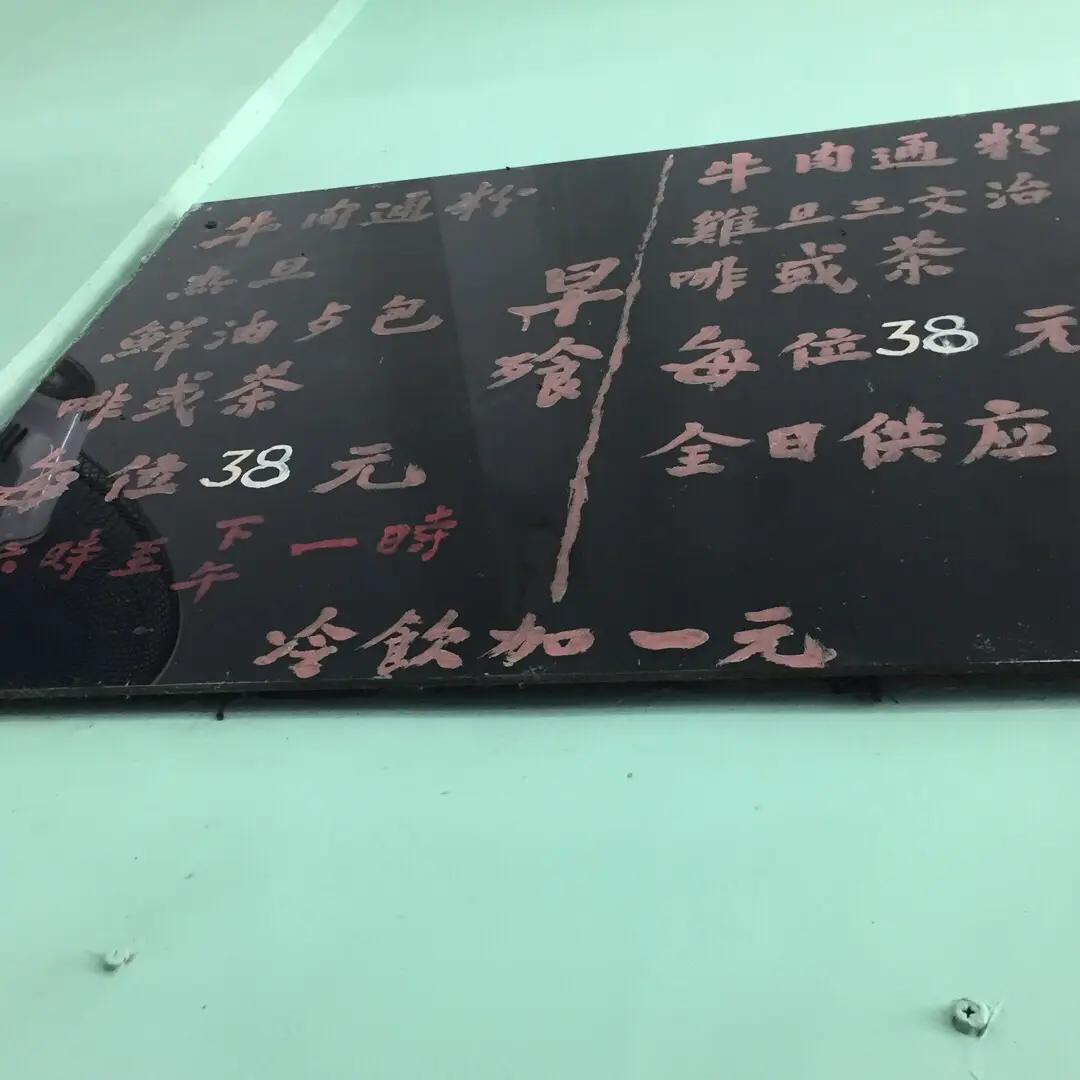 牛肉通粉
杰旦
鮮油占包
啡或茶
每位38元
六時至下午一時
早飡
牛肉通粉
雞旦三文治
啡或茶
每位38元
全日供应
冷飲加一元